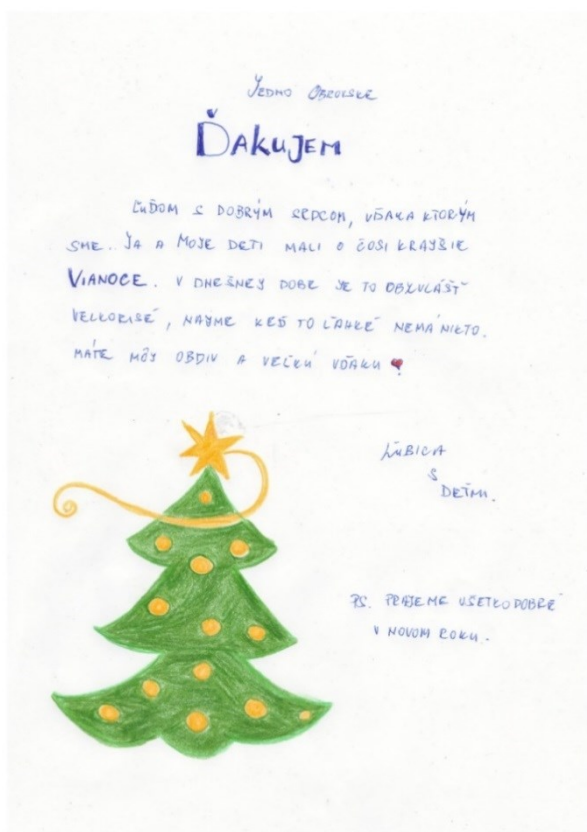 JEDNO OBROVSKÉ
ĎAKUJEM
ĽUĎOM S DOBRÝM SRDCOM, VĎAKA KTORÝM
SME.. JA A MOJE DETI MALI O ČOSI KRAJŠIE
VIANOCE. V DNEŠNEJ DOBE JE TO OBZVLÁŠŤ
VELKORISÉ, NAJME KEĎ TO ĽAHKÉ NEMÁ NIKTO.
MÁTE MÔJ OBDIV A VEĽKÚ VĎAKU
ĽUBICA
S
DEŤMI.
PS. PRAJEME VŠETKO DOBRÉ
V NOVOM ROKU.